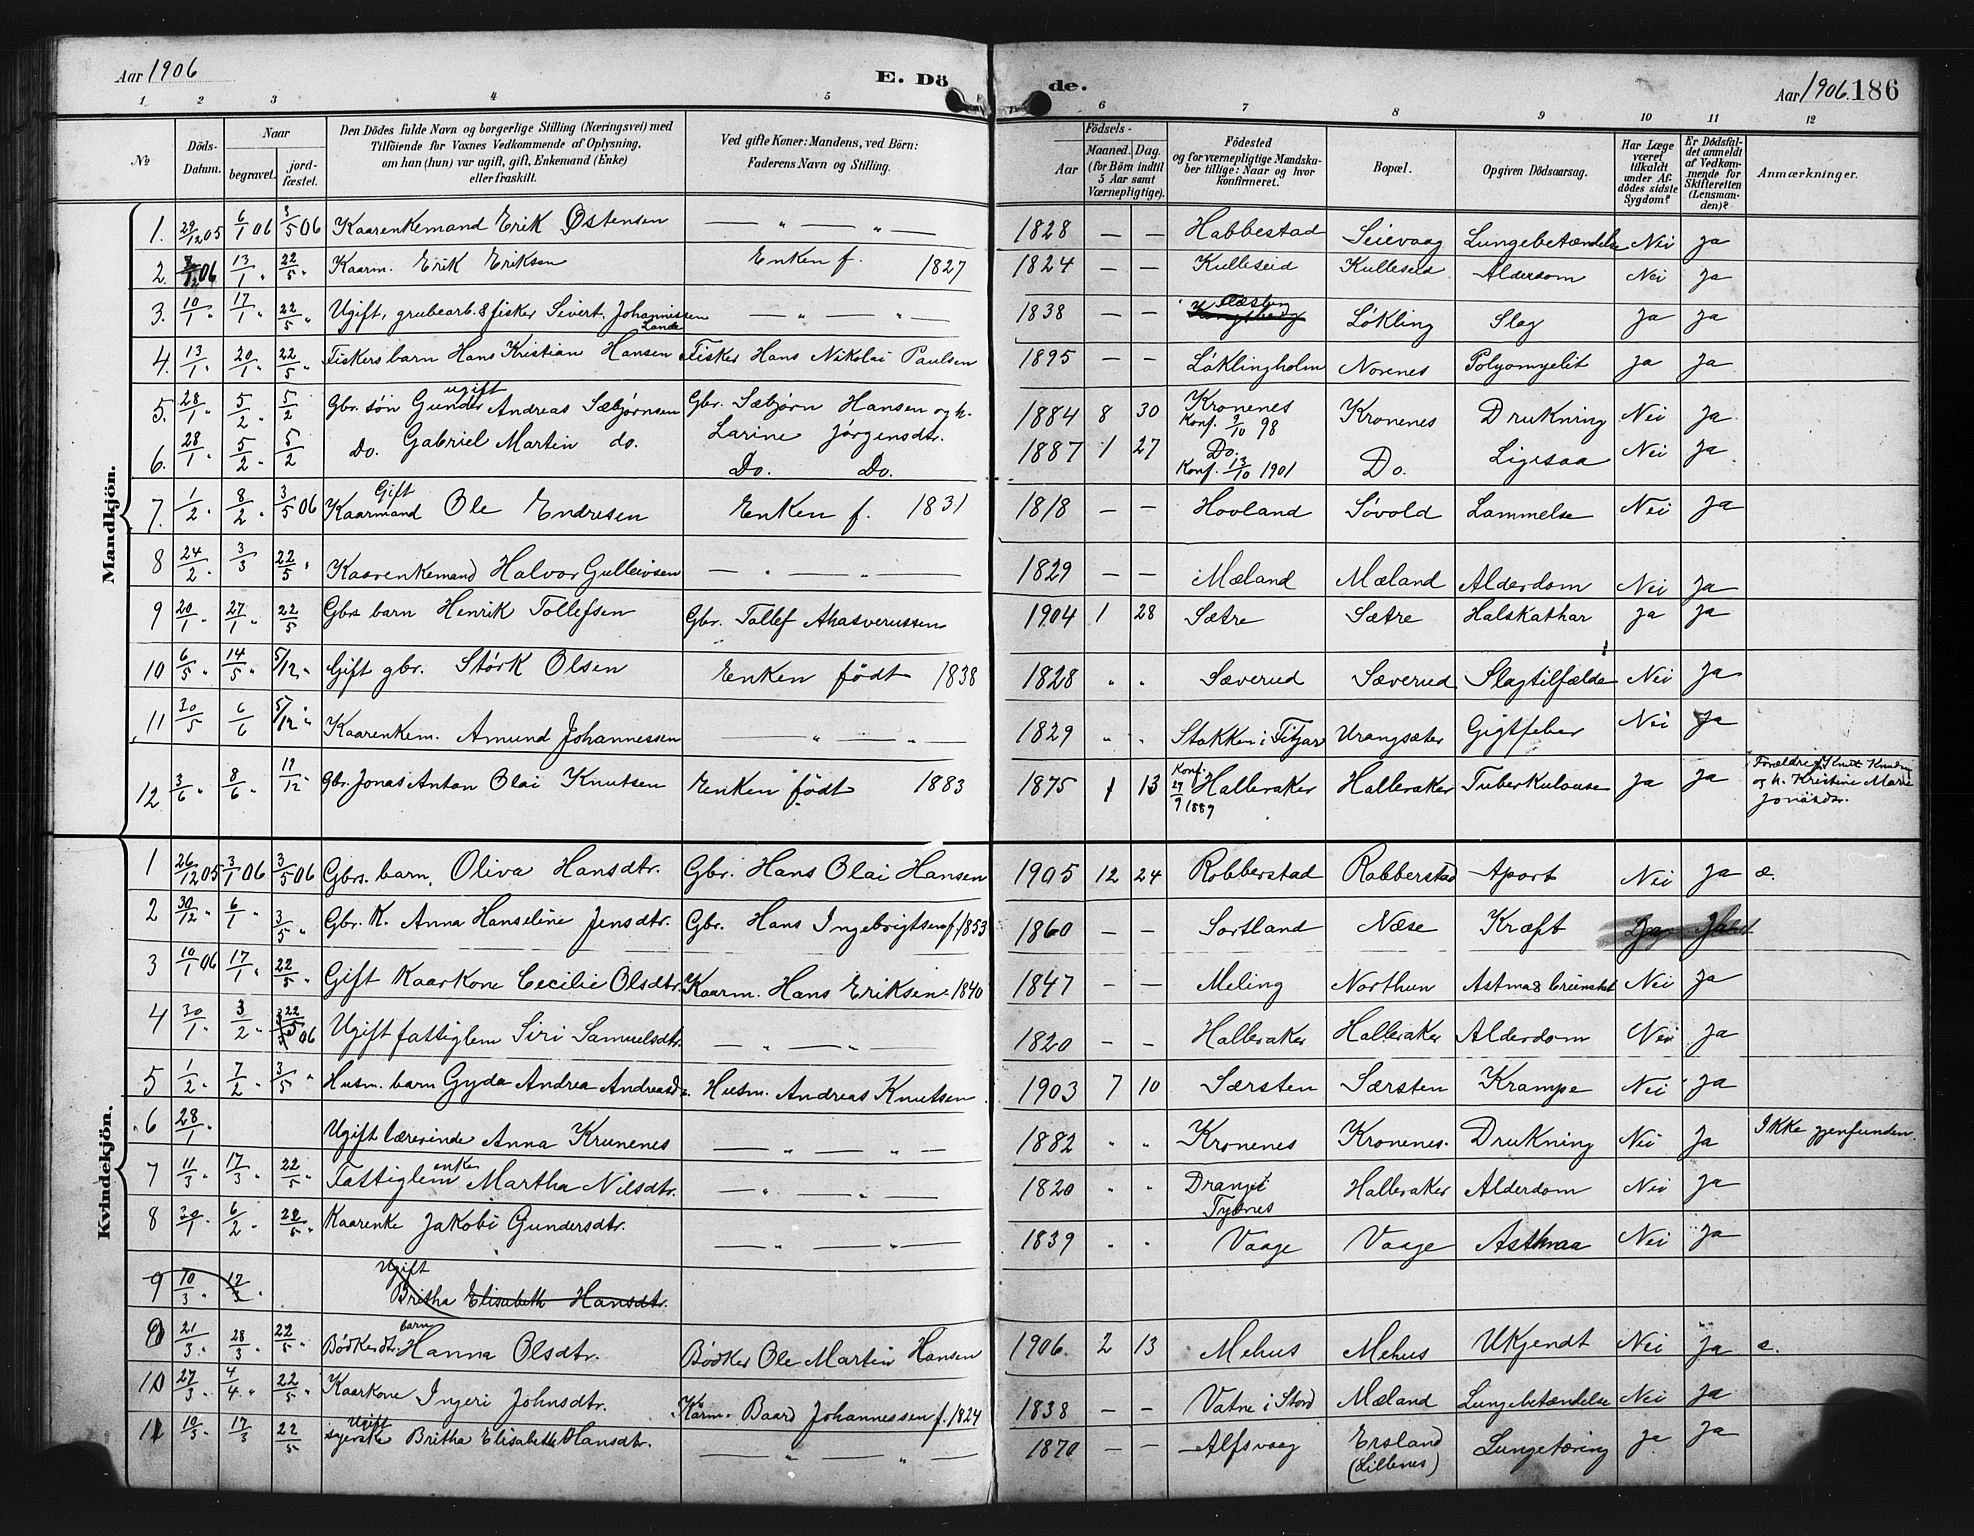 Aar 1906
E. Döde.
Aar 1906. 186
1 2 3 4 5 6 7 8 9 10 11 12
No
Döds-Datum.
Naar
begravet.
jord-fæstet.
Den Dödes fulde Navn og borgerlige Stilling (Næringsvei) med
Tilföiende for Voxnes Vedkommende af Oplysning,
om han (hun) var ugift, gift, Enkemand (Enke)
eller fraskilt.
Ved gifte Koner: Mandens, ved Börn:
Faderens Navn og Stilling.
Födsels-
Aar
Maaned. Dag.
(for Börn indtil
5 Aar samt
Værnepligtige).
Födested
og for værnepligtige Mandska-
ber tillige: Naar og hvor
konfirmeret.
Bopæl.
Opgiven Dödsaarsag.
Har Læge
været
tilkaldt
under Af-
dödes sidste
Sygdom?
Er Dödsfal-
det anmeldt
af Vedkom-
mende for
Skifteretten
(Lensman-
den)?
Anmærkninger.
Mandkjön.
1. 29/12 05 6/1 06 3/5 06 Kaarenkemand Erik Østensen — " — " — 1828 — — Habbestad Seievaag Lungebetændelse Nei Ja
2. 06 13/1 " 22/5 " Kaarm. Erik Eriksen Enken f. 1827 1824 — — Kulleseid Kulleseid Alderdom Nei Ja
3. 10/1 " 17/1 " 22/5 " Ugift, grubearb. & fisker Sivert Johannessen Lande — " — " — 1838 — — Løkling Slag Ja Ja
4. 13/1 " 20/1 " 22/5 " Fiskers barn Hans Kristian Hansen Fisker Hans Nikolai Paulsen 1895 — — Løklingholm Norenes Polyomyelit Ja Ja
5. 28/1 " 5/2 " 5/2 Gbr. søn ugift Gunder Andreas Sæbjørnsen Gbr. Sæbjørn Hansen og h. Larine Jørgensdtr. 1884 8 30 Kronenes Konf. 2/10 98 Kronenes Drukning Nei Ja
6. 28/1 " 5/2 " 5/2 Do. Gabriel Martin do. Do. Do. 1887 1 27 Do. Konf. 13/10 1901 Do. Ligesaa Nei Ja
7. 1/2 " 8/2 " 3/5 06 Gift Kaarmand Ole Endresen Enken f. 1831 1818 — — Hovland Søvold Lammelse Nei Ja
8 24/2 " 3/3 22/5 " Kaarenkemand Halvor Gulleivsen — " — " — 1829 — — Mæland Mæland Alderdom Nei Ja
9 20/1 " 27/1 " 22/5 Gbrs barn Henrik Tollefsen Gbr. Tollef Ahasverussen 1904 1 28 Sætre Sætre Halskathar Ja Ja
10 6/5 " 14/5 " 5/12 " Gift gbr. Størk Olsen Enken født 1838 1828 " " Sæverud Sæverud Slagtilfælde Nei Ja
11 30/5 6/6 5/12 " Kaarenkem. Amund Johannessen — " — " — 1829 " " Stokken i Fitjar Vrangsæter Gigtfeber Nei Ja
12 3/6 " 8/6 " 19/12 " Gbr. Jonas Anton Olai Knutsen Enken født 1883 1875 1 13 Konf. 29/9 1889 Halleraker Halleraker Tuberkulouse Ja Ja Forældre: Knut Knutsen og h. Kristine Marie Jonasdtr.
Kvindekjön.
1 26/12 05 3/1 06 3/5 06 Gbrs. barn, Oliva Hansdtr. Gbr. Hans Olai Hansen 1905 12 24 Robberstad Robberstad Aport Nei Ja æ.
2 30/12 " 6/1 " 3/5 " Gbr. k. Anna Hanseline Jensdtr. Gbr. Hans Ingebrigtsen f. 1853 1860 — — Sortland Næse Kræft
3 10/1 06 17/1 " 22/5 " Gift Kaarkone Cecilie Olsdtr. Kaarm. Hans Eriksen 1840 1847 — — Meling Northun Astma & Nei Ja
4 30/1 " 3/2 " 22/5 06 Ugift fattiglem Siri Samuelsdtr. — " — " — 1820 — — Halleraker Halleraker Alderdom Nei Ja
5 1/2 " 7/2 " 3/5 " Husm. barn Gyda Andrea Andreasd. Husm. Andreas Knutsen 1903 7 10 Særsten Særsten Krampe Nei Ja
6 28/1 " Ugift lærerinde Anna Krunenes — " — " — 1882 " " Kronenes Kronenes. Drukning Nei Ja Ikke gjenfunden.
7 11/3 " 17/3 " 22/5 " Fattiglem enke Martha Nilsdtr. — " — " — 1820 " " Drange i Tysnes Halleraker Alderdom Nei Ja
8 30/1 " 6/2 " 22/5 " Kaarenke Jakobi Gundersdtr. — " — " — 1839 " " Vaage Vaage Asthma Nei Ja
9 10/3 " 17/3 " Ugift Britha Elisabeth Hansdtr.
9 21/3 " 28/3 " 22/5 " Bødkerdt. barn Hanna Olsdtr. Bødker Ole Martin Hansen 1906. 2 13 Mehus Mehus Ukjendt Nei Ja æ.
10 27/3 " 4/4 " 22/5 " Kaarkone Ingeri Johnsdtr. Karm. Baard Johannessen f. 1824 1838 — — Vatne i Stord Mæland Lungebetændelse Nei Ja
11 10/3 " 17/3 22/5 Ugift syerske Britha Elisabeth Hansdtr. — " — " — 1870 — — Alfsvaag Ersland (Lillenes) Lungetæring Ja Ja